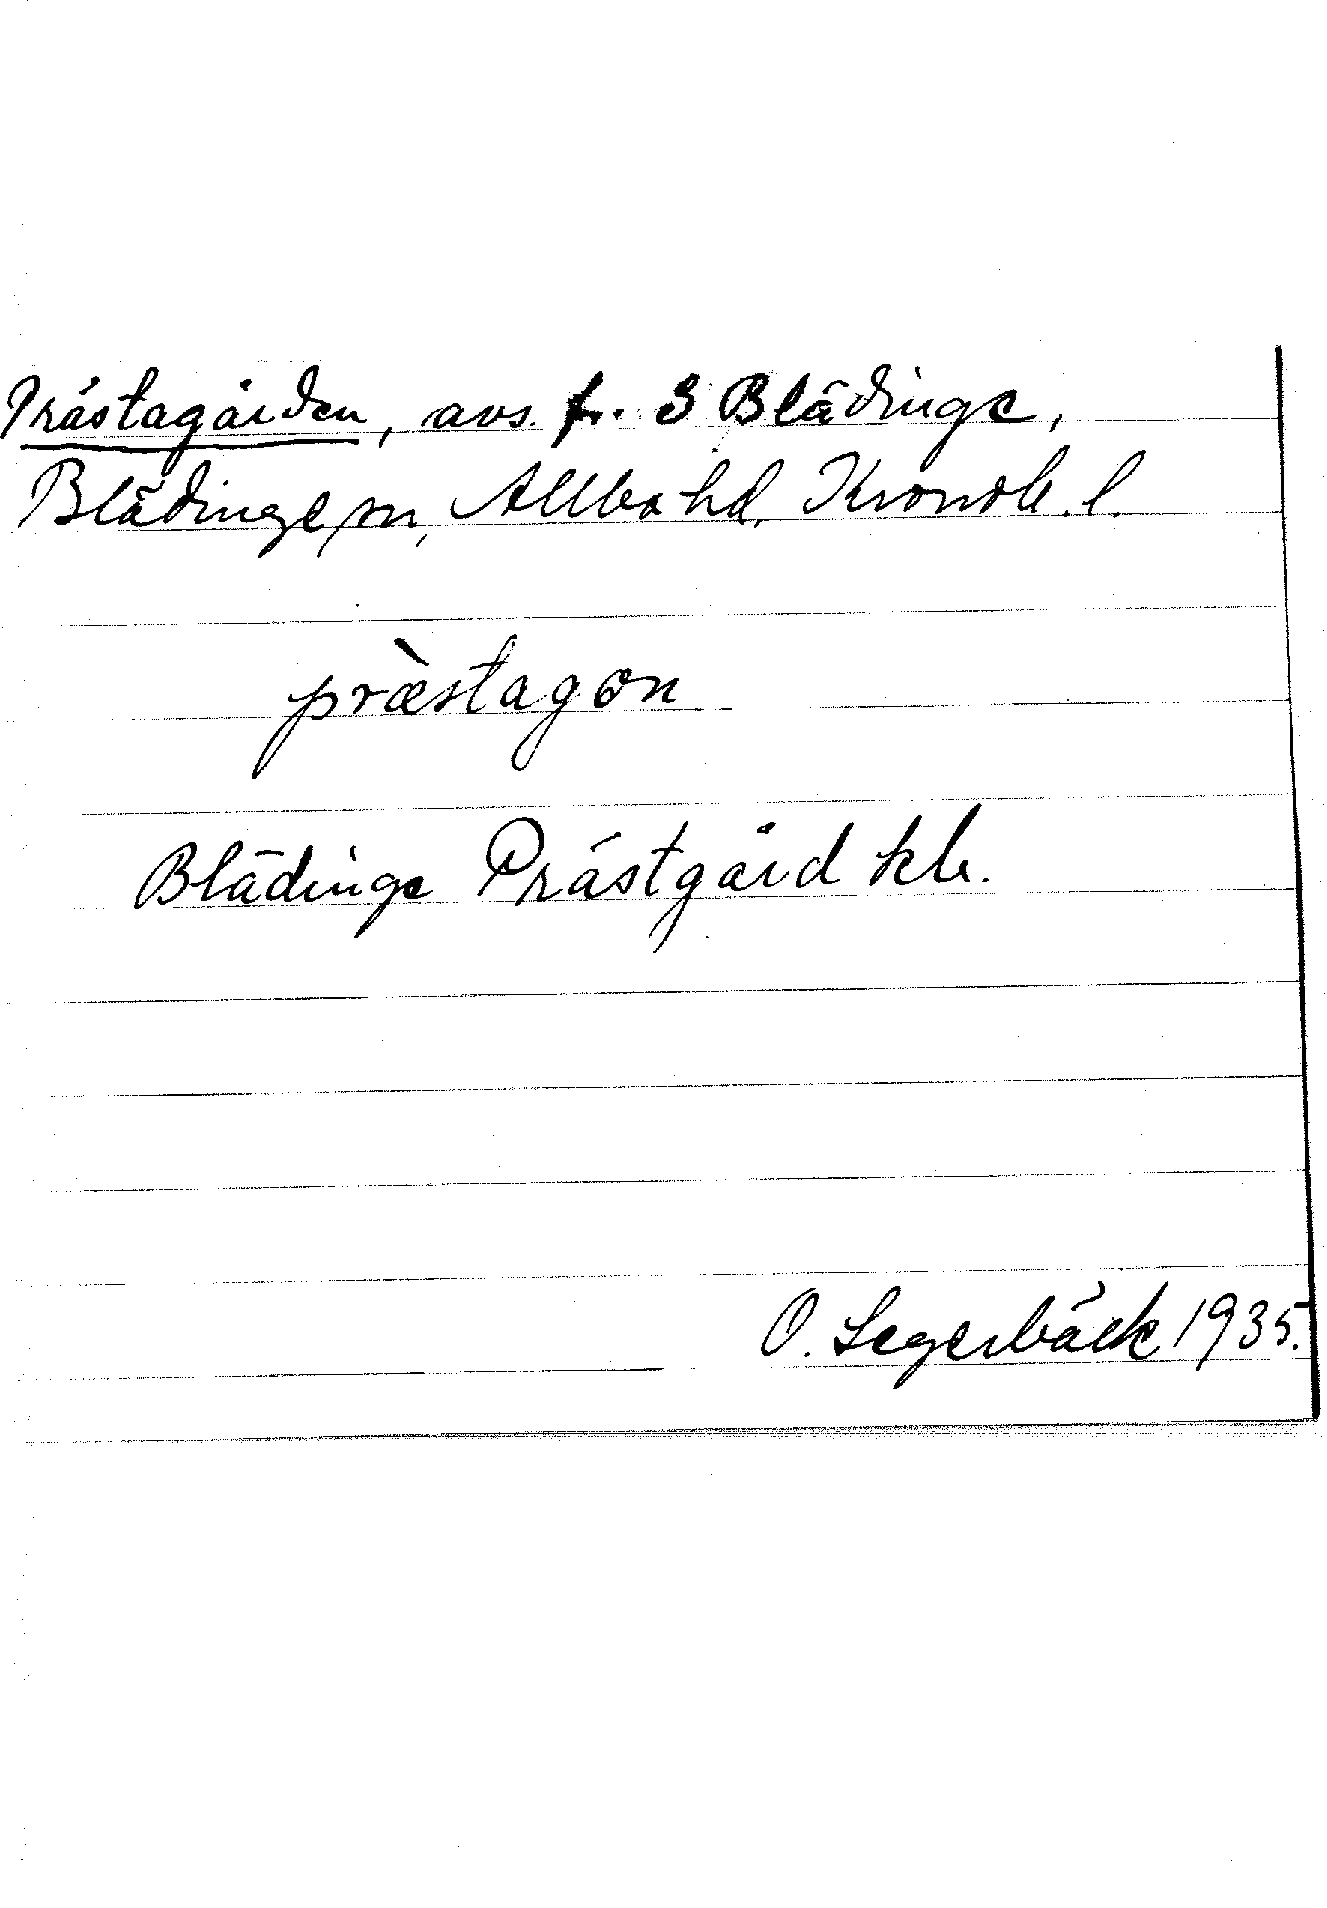 Prästagården, avs. fr. S Blädinge,
Blädinge sn, Allbo hd, Kronob. l.
præ̀stagon
Blädinge Prästgård kb.
O. Segerbäck 1935.